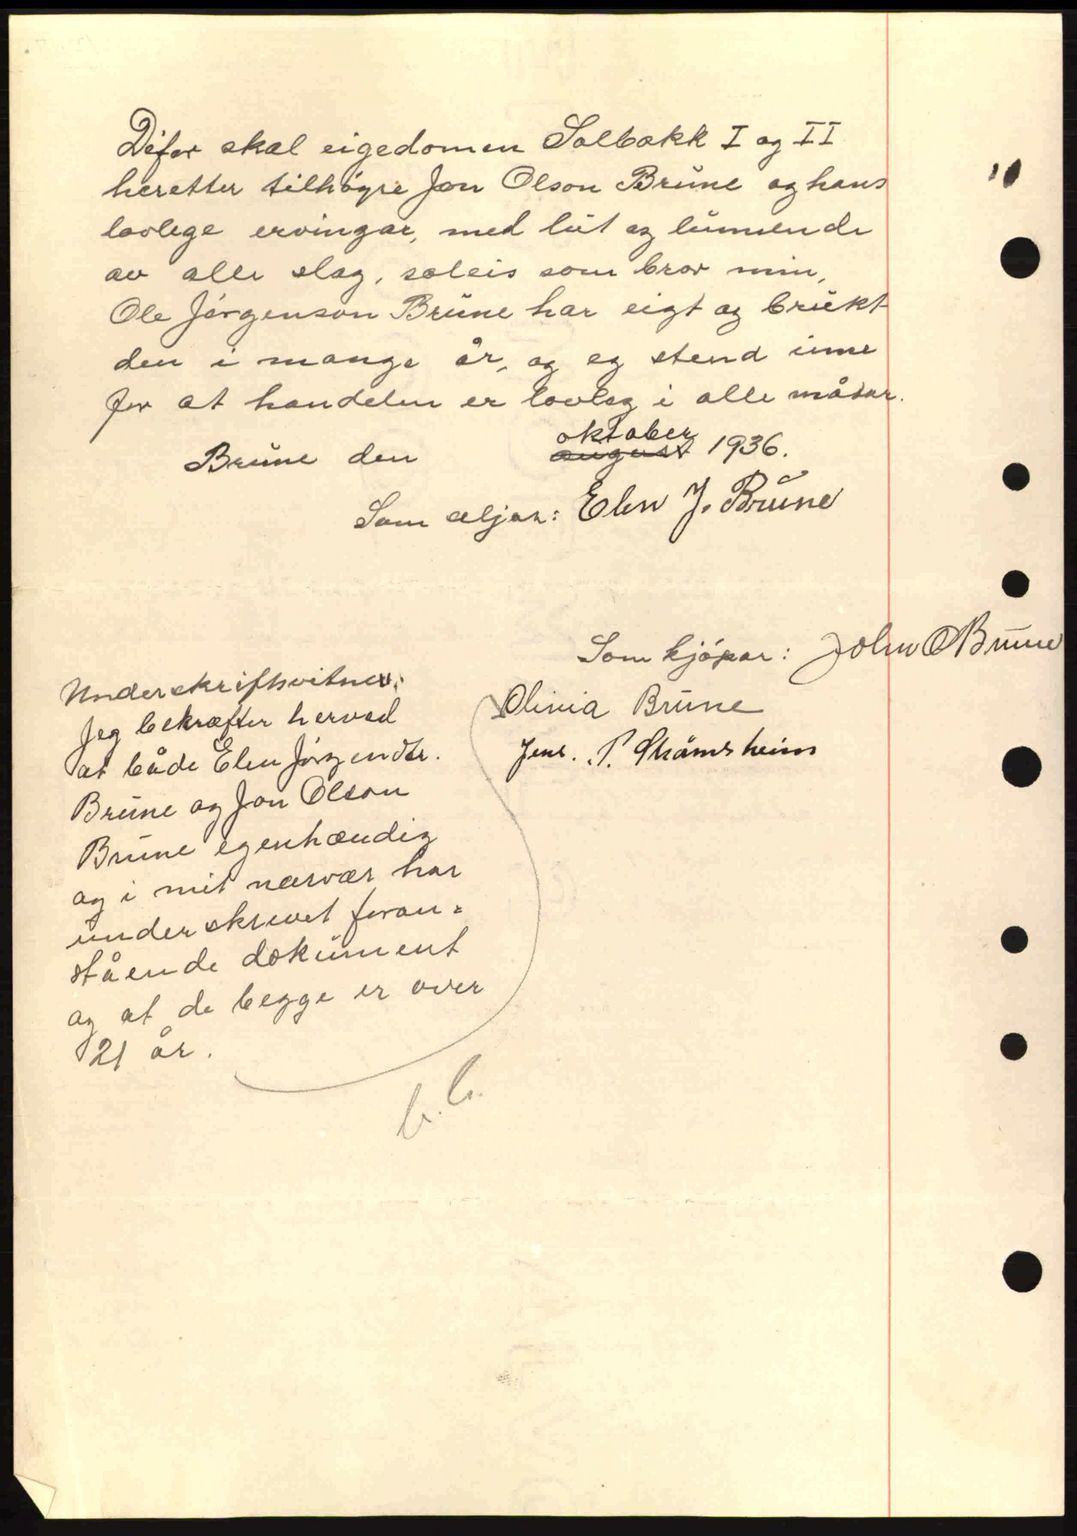 Difor skal eigedomen Solbakk I og II
heretter tilhøyre Jon Olson Brune og hans
lovlege ervingar, med lut og lunnende
av alle slag, soleis som bror min,
Ole Jørgenson Brune har eigt og brukt
den i mange år, og eg stend inne
for at handelen er lovleg i alle måtar.
oktober
Brune den august 1936.
Som seljar: Elen J. Brune
Som kjøpar: John O Brune
Underskriftsvitner:
Olivia Brune
Jeg bekræfter herved
at både Elen Jørgendtr.
Jens. P.
Brune og Jon Olson
Brune egenhændig
og i mit nærvær har
underskrevet foran=
stående dokument
og at de begge er over
21 år.